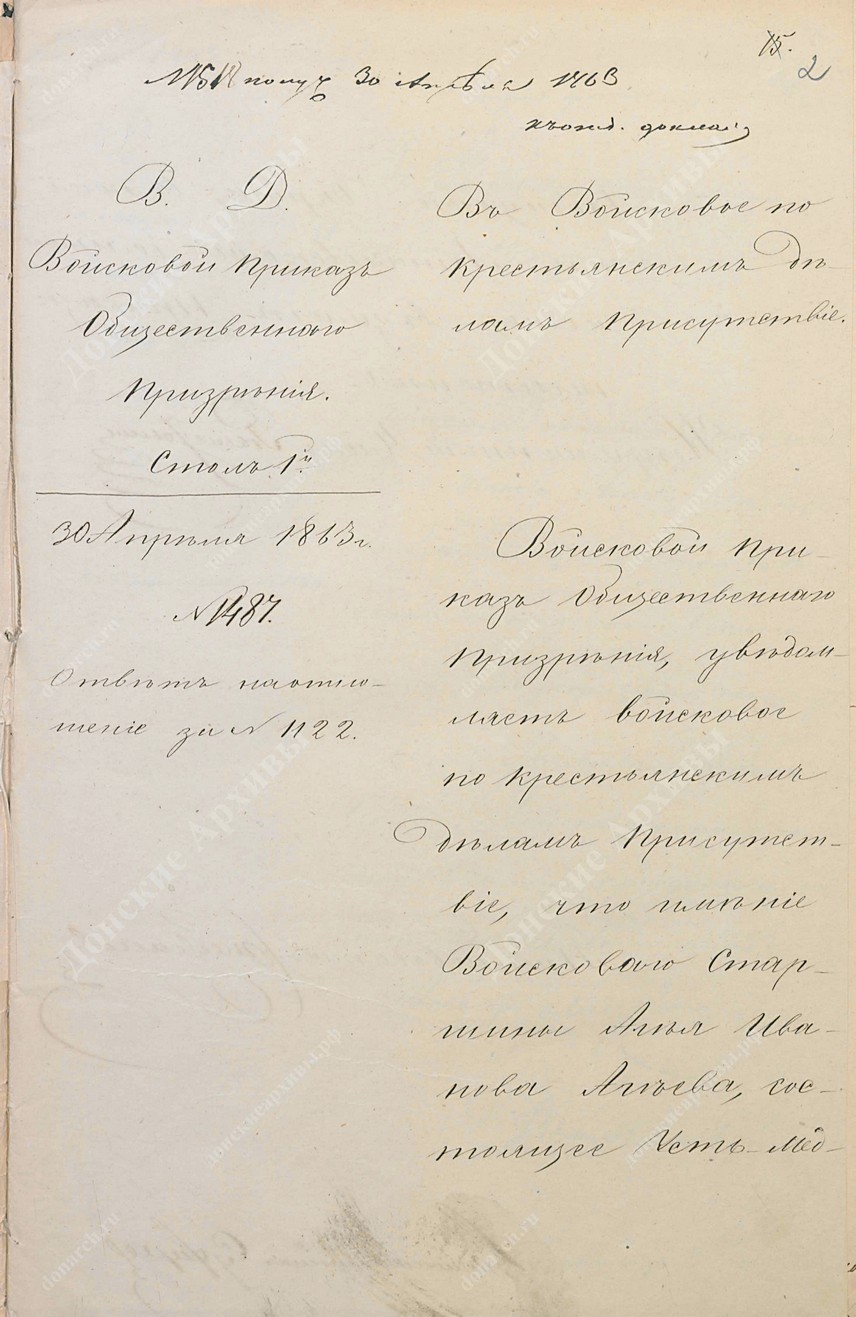 15.
2
№ 518 получ 30 Апрѣля 1863
В. Д.
Войсковой Приказъ
Общественнаго
Призрѣнія.
Столъ 1й
30 Апрѣля 1863 г.
№ 1487.
Отвѣтъ на отно-
шеніе за № 1122.
Въ Войсковое по
крестьянскимъ дѣ-
ламъ Присутствіе.
Войсковой При-
казъ Общественнаго
Призрѣнія, увѣдом-
ляетъ войсковое
по крестьянскимъ
дѣламъ Присутст-
віе, что имѣніе
Войсковаго Стар-
шины Агѣя Ива-
нова Агѣева, сос-
тоящее Усть-Мед-